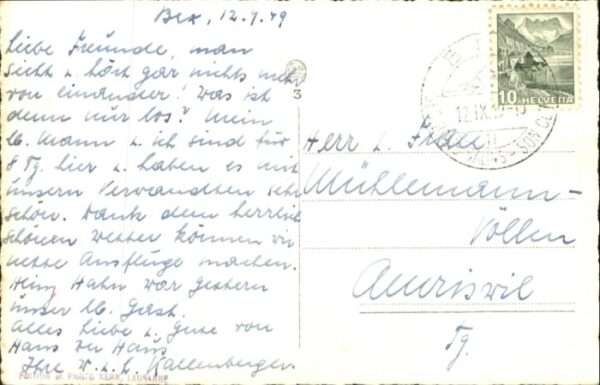 Bex, 12.9.49
Liebe Freunde, man
sieht u. hört gar nichts mehr
von einander! Was ist
denn nur los? Mein
lb. Mann u. ich sind für
8 Tg. hier u. haben es mit
unsern Verwandten sehr
schön. Dank dem herrlich
schönen Wetter können wir
nette Ausflüge machen.
Heinz Hahn war gestern
unser lb. Gast.
Alles Liebe u. Gute von
Haus zu Haus
Ihre W. u. L. Kallenberger
3
10 HELVETIA
12.IX.
Herr u. Frau
Mühlemann-
Völlen
Amriswil
Tg.
LAUSANNE